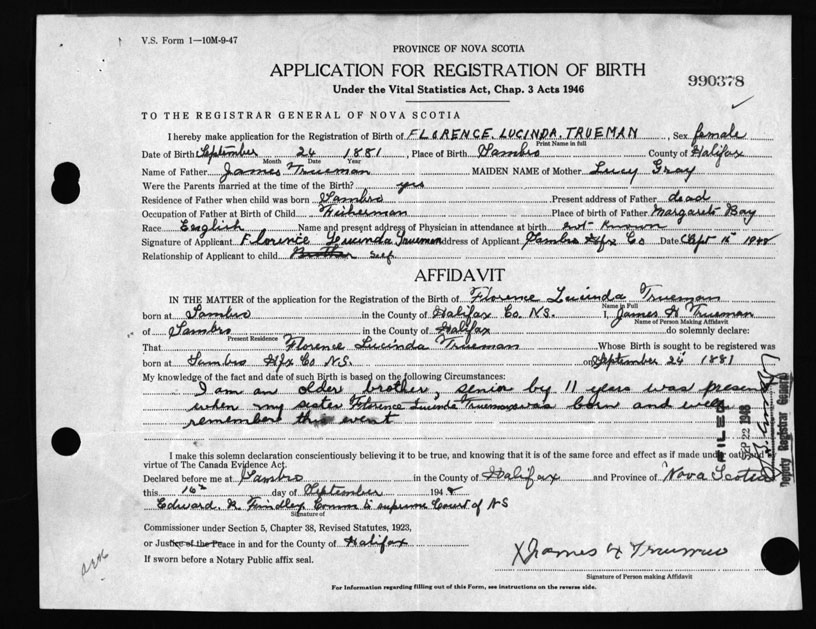 V.S. Form 1—10M-9-47
PROVINCE OF NOVA SCOTIA
APPLICATION FOR REGISTRATION OF BIRTH
990378
Under the Vital Statistics Act, Chap. 3 Acts 1946
TO THE REGISTRAR GENERAL OF NOVA SCOTIA
I hereby make application for the Registration of Birth of FLORENCE. LUCINDA. TRUEMAN, Sex female
Print Name in full
Date of Birth September 24 1881, Place of Birth Sambro County of Halifax
Month Date Year
Name of Father James Trueman MAIDEN NAME of Mother Lucy Gray
Were the Parents married at the time of Birth? yes
Residence of Father when child was born Sambro Present address of Father dead
Occupation of Father at Birth of Child Fisherman Place of birth of Father Margarets Bay
Race English Name and present address of Physician in attendance at birth not known
Signature of Applicant Florence Lucinda Trueman Address of Applicant Sambro Hfx Co Date Sept 16 1948
Relationship of Applicant to child Brother self
AFFIDAVIT
IN THE MATTER of the application for the Registration of the Birth of Florence Lucinda Trueman
Name in Full
born at Sambro in the County of Halifax Co. N.S. I, James H Trueman
Name of Person Making Affidavit
of Sambro in the County of Halifax do solemnly declare:
Present Residence
That Florence Lucinda Trueman Whose Birth is sought to be registered was
born at Sambro Hfx Co N.S. on September 24 1881
My knowledge of the fact and date of such Birth is based on the following Circumstances:
I am an older brother, senior by 11 years was present
when my sister Florence Lucinda Trueman was born and well
remember the event
FILED
SEP 22 1948
Deputy Registrar General
I make this solemn declaration conscientiously believing it to be true, and knowing that it is of the same force and effect as if made under oath and
virtue of The Canada Evidence Act.
Declared before me at Sambro in the County of Halifax and Province of Nova Scotia
this 16 day of September 1948
Edward. R. Findley Comm to supreme Court of NS
Signature of
Commissioner under Section 5, Chapter 38, Revised Statutes, 1923,
or Justice of the Peace in and for the County of Halifax
If sworn before a Notary Public affix seal.
X James H Trueman
Signature of Person making Affidavit
For Information regarding filling out of this Form, see instructions on the reverse side.